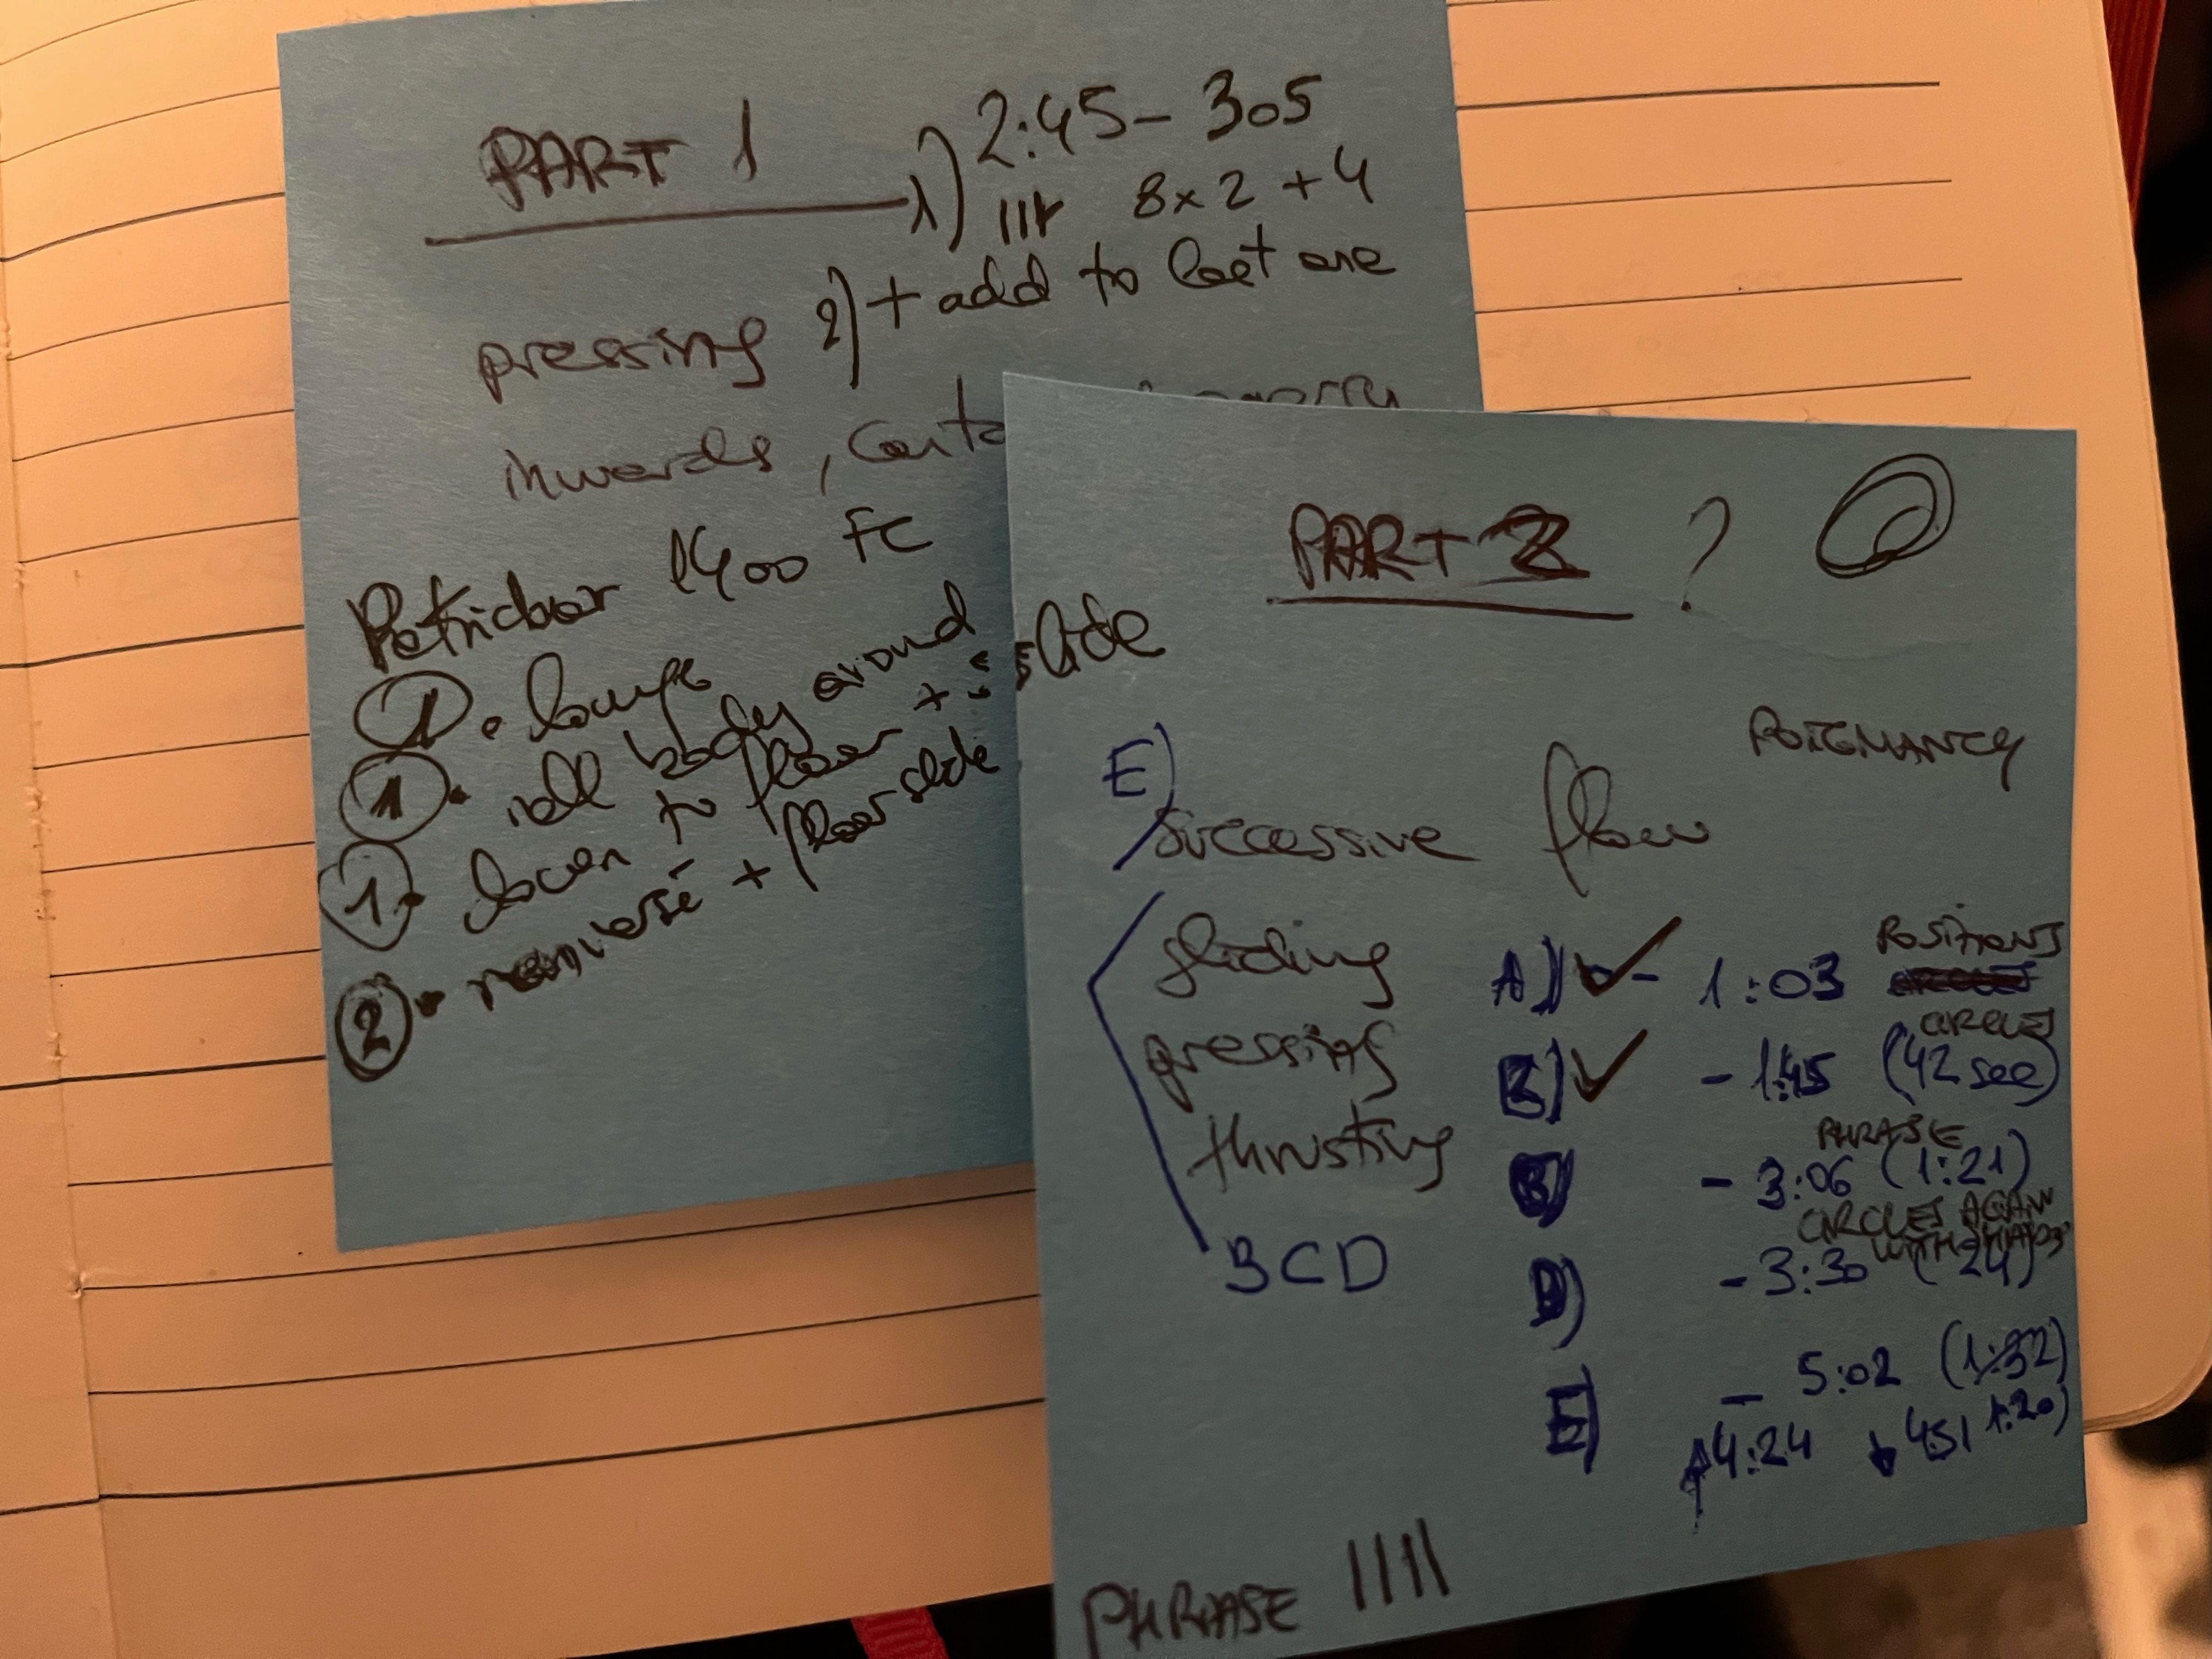 PART 1
1) 2:45 - 305
8x2 + 4
pressing 2) + add to last one
inwards,
1400 FC
1. lounge
1. roll body around
1. down to floor + slide
2. renversé + floor slide
PART 2 ?
POIGNANCY
E)
successive flow
gliding A) - 1:03 POSITIONS
CIRCLES
pressing B) - 1:45 (42 sec)
PHRASE
thrusting - 3:06 (1:21)
CIRCLES AGAIN
WITH
BCD D) - 3:30 (24)
E) - 5:02 (1:32)
4:24 451 1:20)
PHRASE IIIII